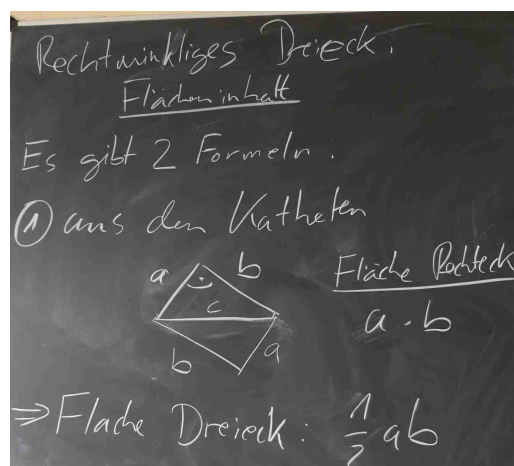 Rechtwinkliges Dreieck.
Flächeninhalt
Es gibt 2 Formeln:
① aus den Katheten
a b
c
b a
Fläche Rechteck
a · b
⇒ Fläche Dreieck: 1/2 ab